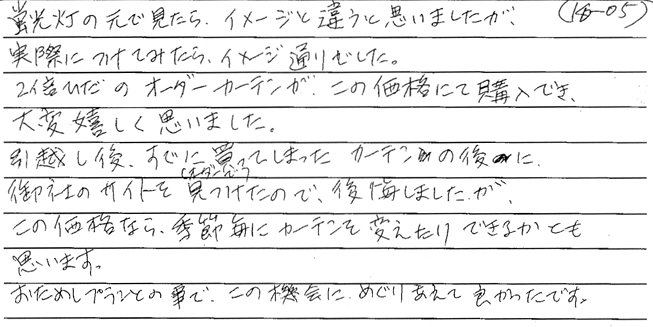 蛍光灯の元で見たら、イメージと違うと思いましたが、 (18-05)
実際につけてみたら、イメージ通りでした。
2倍ひだのオーダーカーテンが、この価格にて購入でき、
大変嬉しく思いました。
引越し後、すぐに買ってしまったカーテンの後に、
御社のサイトを見つけたので、後悔しましたが、
この価格なら、季節毎にカーテンを変えたりできるかとも
思います。
おためしプランとの事で、この機会に、めぐりあえて良かったです。